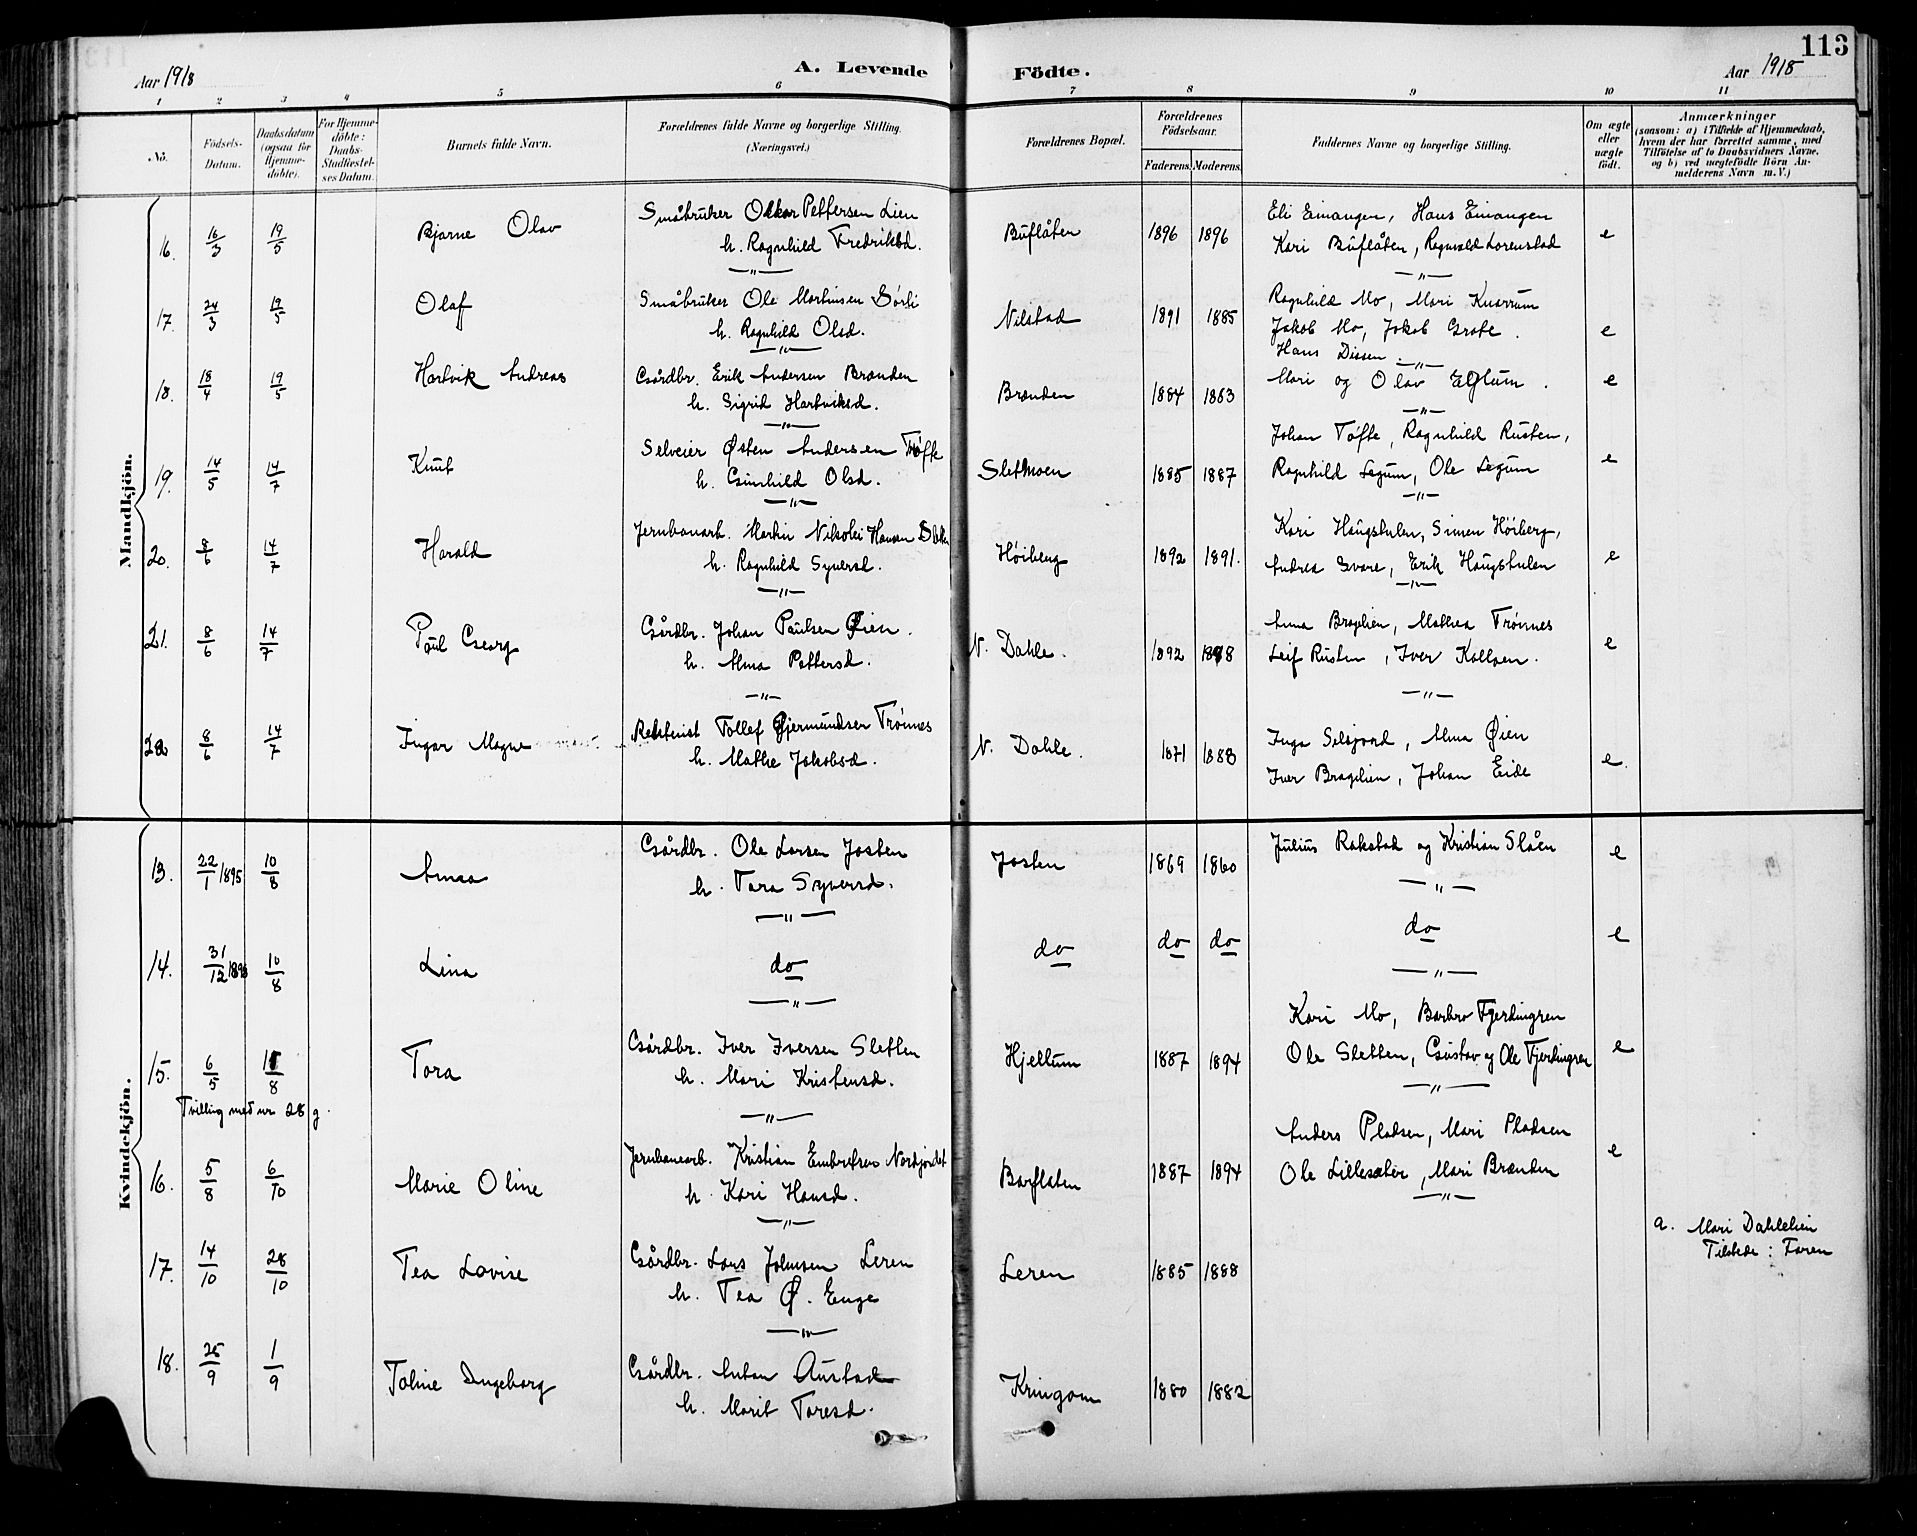 113
Aar 1918
A. Levende Födte.
Aar 1918
1 2 3 4 5 6 7 8 9 10 11
No.
Födsels-Datum.
Daabsdatum (ogsaa for Hjemme-döbte).
For Hjemme-döbte: Daabs-Stadfæstel-ses Datum.
Barnets fulde Navn.
Forældrenes fulde Navne og borgerlige Stilling. (Næringsvei.)
Forældrenes Bopæl.
Forældrenes Födselsaar.
Faderens. Moderens.
Faddernes Navne og borgerlige Stilling.
Om ægte eller uægte födt.
Anmærkninger
(saasom: a) i Tilfælde af Hjemmedaab, hvem der har forrettet samme, med Tilföielse af to Daabsvidners Navne, og b) ved uægtefödte Börn An-melderens Navn m. V.)
Mandkjön.
16. 16/3 19/5 Bjarne Olav
Småbruker Oskar Pettersen Lien
h. Ragnhild Fredriksd.
Buflåten 1896 1896
Eli Einangen, Hans Einangen
Kari Buflåten, Ragnvald Lorenstad
e
17. 24/3 19/5 Olaf
Småbruker Ole Martinsen Børli
h. Ragnhild Olsd.
Nilstad 1891 1885
Ragnhild Mo, Mari
Jakob Mo, Jakob Grote.
Hans Dissen.
e
18. 18/4 19/5 Hartvik Andreas
Gårdbr. Erik Andersen Brænden
h. Sigrid Hartviksd.
Brænden 1884 1883
Mari og Olav Eglum.
e
19. 14/5 14/7 Knut
Selveier Østen Andersen Tøfte
h. Gunhild Olsd.
Sletmoen 1885 1887
Johan Tøfte, Ragnhild Rusten,
Ragnhild Legum, Ole Legum
e
20. 8/6 14/7 Harald
Jernbanarb. Martin Nikolei Hansen
h. Ragnhild Syversd.
Høiberg 1892 1891.
Kari Haugstulen, Simen Høiberg,
Andrea Svare, Erik Haugstulen
e
21. 8/6 14/7 Paul Georg
Gårdbr. Johan Paulsen Øien.
h. Alma Pettersd.
N. Dahle. 1892 1898
Anna Bragelien, Mathea Trønnes
Leif Rusten, Iver Kolloen.
e
22 8/6 14/7 Ingar Magne
Tollef Gjermundsen Trønnes
h. Mathe Jakobsd.
N. Dahle. 1871 1888
Inga Selsjord, Alma Øien
Iver Bragelien, Johan Eide
e.
Kvindekjön.
13. 22/1 1895 10/8 Anna
Gårdbr. Ole Larsen Josten
h. Tora Syversd.
Josten 1869 1860
Julius Rakstad og Kristian Slåen
e
14. 31/12 10/8 Lina
do
do do do
do
e
15. 6/5 11/8 Tora
Gårdbr. Iver Iversen Sletten
h. Mari Kristensd.
Hjeltum 1887 1894
Kari Mo, Barbro Fjerdingren
Ole Sletten, Gustav og Ole Fjerdingren
e
Tvilling med nr 28 g.
16. 5/8 6/10 Marie Oline
Jernbanearb. Kristian Embretsen Nordjordet
h. Kari Hansd.
Barflaten 1887 1894
Anders Pladsen, Mari Pladsen
Ole Lillesæter, Mari Brænden
e
17. 14/10 28/10 Tea Lovise
Gårdbr. Lars Johnsen Leren
h. Tea Ø. Enge
Leren 1885 1888
a. Mari Dahlelien
Tilstede: Faren
18. 25/9 1/9 Toline Ingeborg
Gårdbr. Anton Austad
h. Marit Toresd.
Kringom 1880 1882